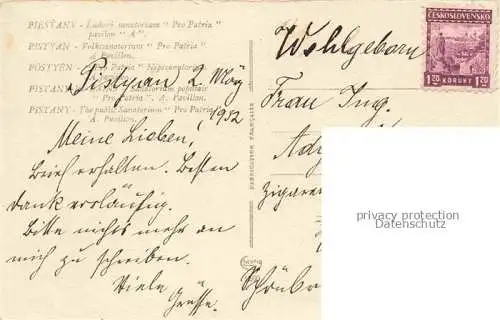 PIEŠŤANY - Ľudové sanatorium "Pro Patria"
pavilon "A"
PISTYAN - Volkssanatorium "Pro Patria"
A. Pavillon.
PÖSTYÉN - "Pro Patria" Népszanatorium
PISTANY - Sanatorium populaire
"Pro Patria". A. Pavillon.
PISTANY - The public Sanatorium "Pro Patria"
A. Pavillon.
Pistyan 2 März
1932
Meine Lieben!
Brief erhalten. Besten
dank vorläufig.
Bitte nichts mehr an
mich zu schreiben.
Viele
Grüsse.
Wohlgeboren
Frau Ing.
ČESKOSLOVENSKO
1.20 KORUNY 1.20
privacy protection
Datenschutz